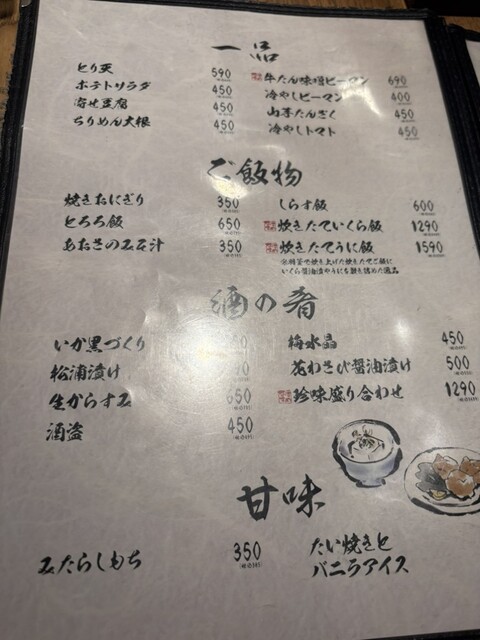 一品
とり天 590
ポテトサラダ 450
寄せ豆腐 450
ちりめん大根 450
牛たん味噌ピーマン 690
冷やしピーマン 400
山芋たんざく 450
冷やしトマト 450
ご飯物
焼きおにぎり 350
とろろ飯 650
あおさのみそ汁 350
しらす飯 600
炊きたていくら飯 1290
炊きたてうに飯 1590
いくら醤油漬やうにを散り詰めた逸品
酒の肴
いか黒づくり
松浦漬け
生からすみ 650
酒盗 450
梅水晶 450
花わさび醤油漬け 500
珍味盛り合わせ 1290
甘味
みたらしもち 350
たい焼きと
バニラアイス